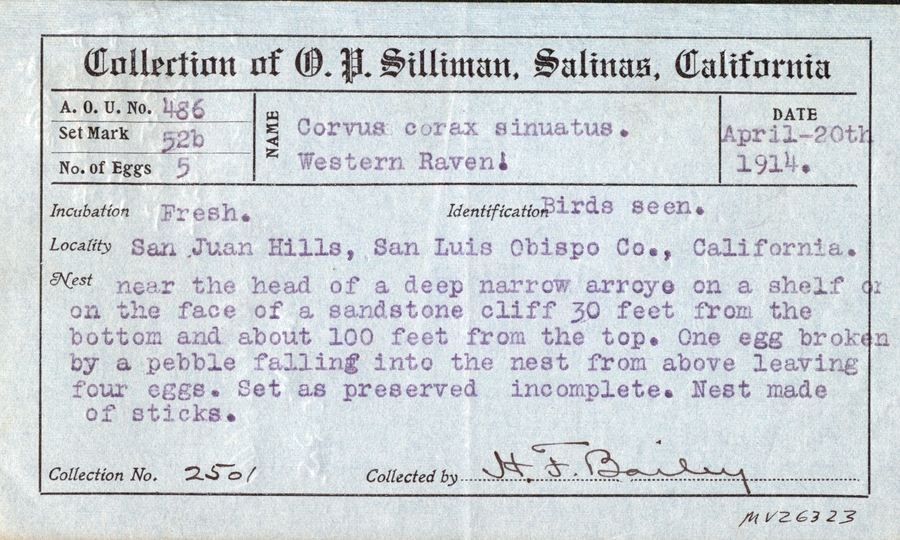 Collection of O. P. Silliman, Salinas, California
A. O. U. No. 486
Set Mark 52b
No. of Eggs 5
NAME
Corvus corax sinuatus.
Western Raven!
DATE
April-20th
1914.
Incubation Fresh. Identification Birds seen.
Locality San Juan Hills, San Luis Obispo Co., California.
Nest near the head of a deep narrow arroyo on a shelf or
on the face of a sandstone cliff 30 feet from the
bottom and about 100 feet from the top. One egg broken
by a pebble falling into the nest from above leaving
four eggs. Set as preserved incomplete. Nest made
of sticks.
Collection No. 2501 Collected by H. F. Bailey
MVZ6323